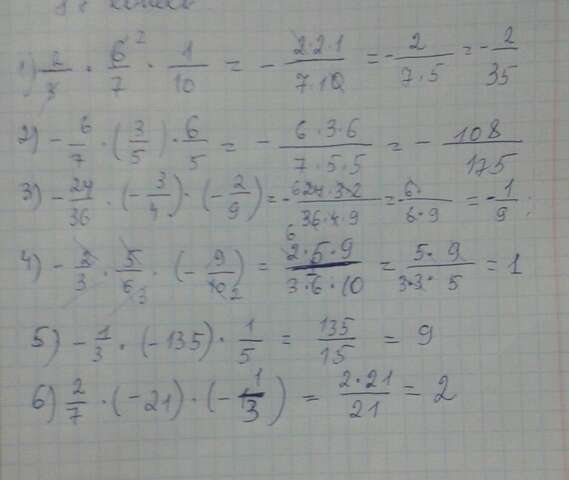 1) - 2/3 · 6²/7 · 1/10 = - 2·2·1/7·10 = - 2/7·5 = - 2/35
2) - 6/7 · (3/5) · 6/5 = - 6·3·6/7·5·5 = - 108/175
3) - 24/36 · (- 3/4) · (- 2/9) = - 24·3·2/36·4·9 = 6·/6·9 = - 1/9
4) - 2/3 · 5/6 · (- 9/10) = 2·5·9/3·6·10 = 5·9/3·3·5 = 1
5) - 1/3 · (-135) · 1/5 = 135/15 = 9
6) 2/7 · (-21) · (- 1/3) = 2·21/21 = 2